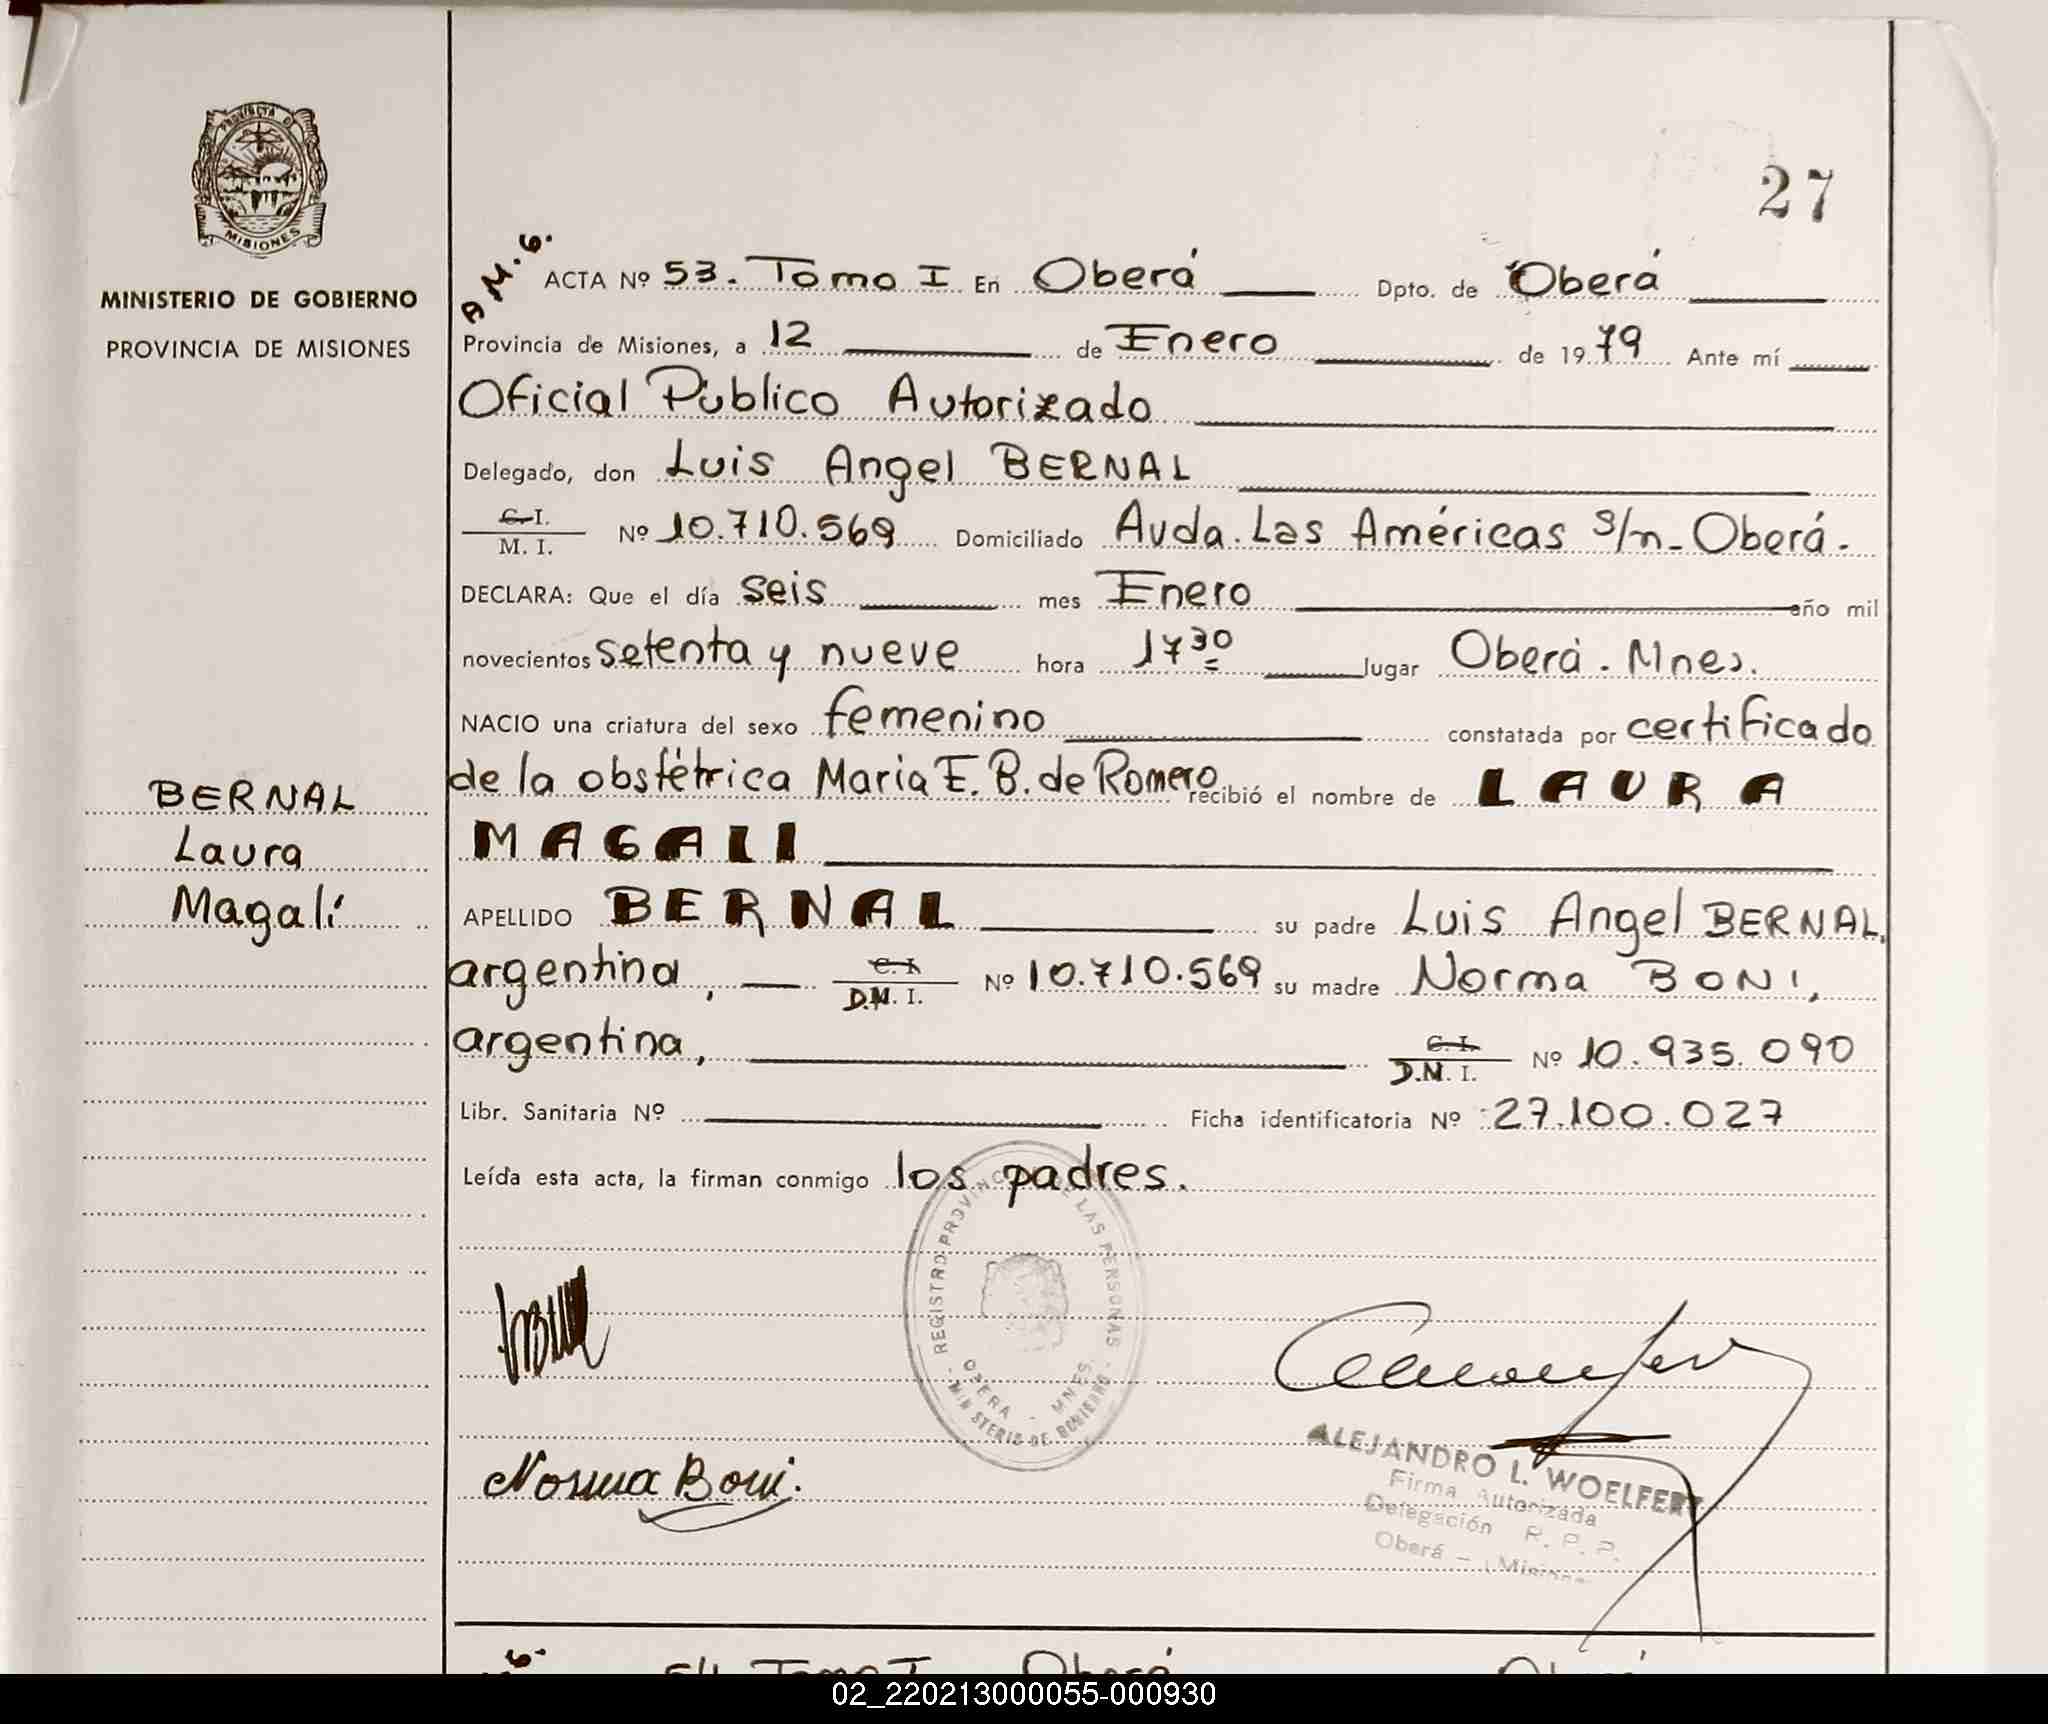 PROVINCIA DE
MISIONES
MINISTERIO DE GOBIERNO
PROVINCIA DE MISIONES
27
A M. G.
ACTA Nº 53. Tomo I En Oberá Dpto. de Oberá
Provincia de Misiones, a 12 de Enero de 1979 Ante mí
Oficial Público Autorizado
Delegado, don Luis Angel BERNAL
C. I.
M. I. Nº 10.710.569 Domiciliado Avda. Las Américas s/n - Oberá.
DECLARA: Que el día seis mes Enero año mil
novecientos setenta y nueve hora 17 30 lugar Oberá. Mnes.
NACIO una criatura del sexo femenino constatada por certificado
de la obstétrica Maria E. B. de Romero recibió el nombre de LAURA
MAGALI
BERNAL
Laura
Magalí
APELLIDO BERNAL su padre Luis Angel BERNAL,
argentina, C. I.
D.N. I. Nº 10.710.569 su madre Norma BONI,
argentina, C. I.
D.N. I. Nº 10.935.090
Libr. Sanitaria Nº Ficha identificatoria Nº 27.100.027
Leída esta acta, la firman conmigo los padres.
REGISTRO PROVINCIAL DE LAS PERSONAS
OBERA - MNES.
MINISTERIO DE GOBIERNO
Norma Boni.
ALEJANDRO L. WOELFERT
Firma Autorizada
Delegación R. P. P.
Oberá - Misiones
54 Tomo I Oberá Oberá
02_220213000055-000930